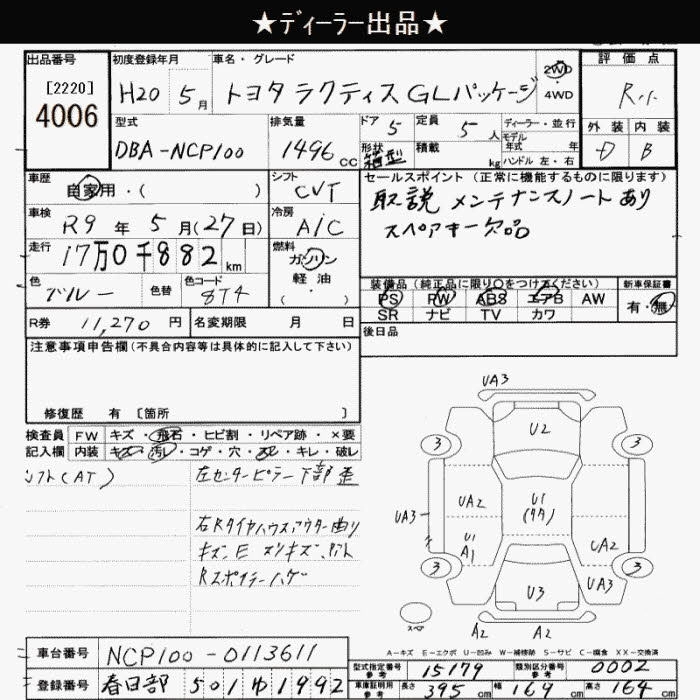 ★ディーラー出品★
出品番号 初度登録年月 車名・グレード 評価点
[2220] H20 5月 トヨタ ラクティス GLパッケージ 2WD 4WD R.
4006
型式 排気量 ドア 5 定員 5人 ディーラー・並行 外装 内装
DBA-NCP100 1496cc 形状 箱型 積載 kg モデル年式 年 ハンドル 左・右 D B
車歴 自家用・( ) シフト CVT セールスポイント (正常に機能するものに限ります)
車検 R9年5月(27日) 冷房 A/C 取説 メンテナンスノートあり
走行 17万0千882km 燃料 ガソリン スペアキー欠品
軽油
色 ブルー 色替 色コード 8T4 ( ・ ) 装備品 (純正品に限り○をつけてください) 新車保証書
PS PW ABS エアB AW 有・無
R券 11,270円 名変期限 月 日 SR ナビ TV カワ
注意事項申告欄(不具合内容等は具体的に記入して下さい) 後日品
修復歴 有 [箇所 ]
検査員 FW キズ・飛石・ヒビ割・リペア跡・×要
記入欄 内装 キズ・汚レ・コゲ・穴・ヌレ・キレ・破レ
シフト(AT) 左センターピラー下部歪
右Rタイヤハウスアウター曲り
キズ、E スリキズ、
Rスポイラーハゲ
UA3
U2
3 3
UA2 U1
UA3 (タタ)
U1 UA2
A1
3 3
U3 UA3
スペア A2 A2
A-キズ E-エクボ U-凹み W-補修跡 S-サビ C-腐食 XX-交換済
車台番号 NCP100-0113611
型式指定番号 参考 15179 類別区分番号 参考 0002
登録番号 春日部 501 ゆ 1992
車庫証明用 参考 長さ 395cm 幅 169cm 高さ 164cm